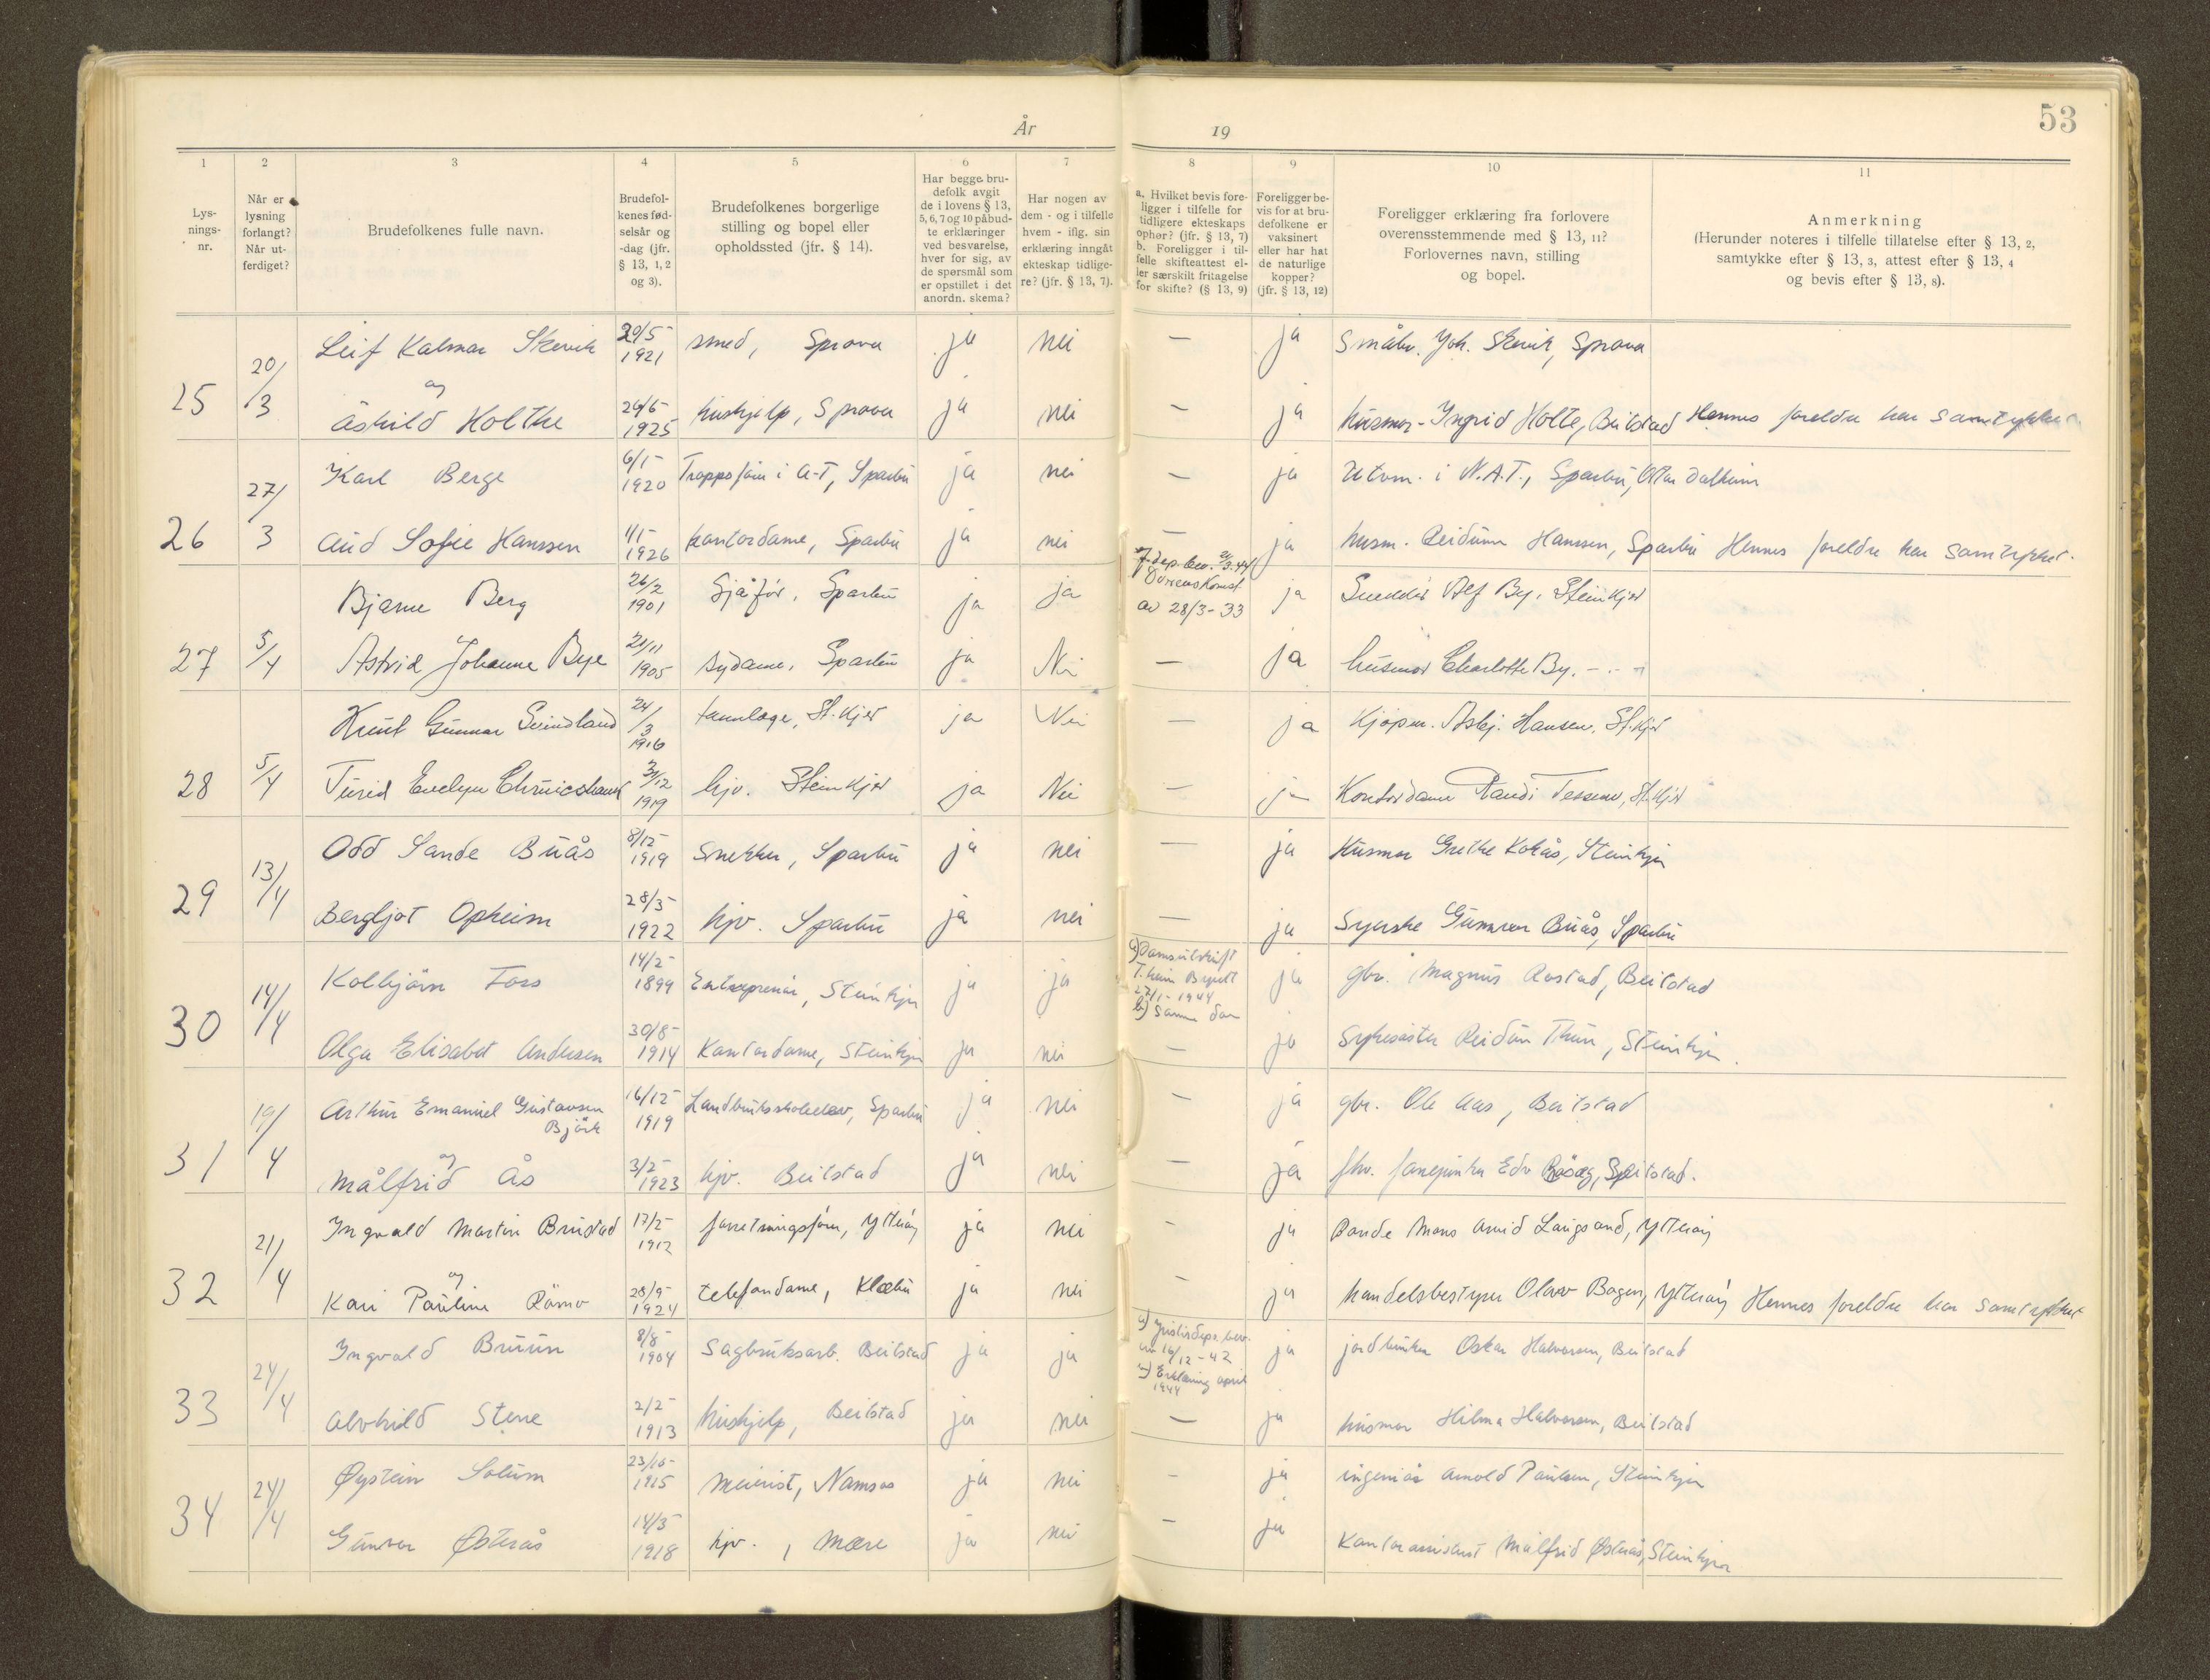 År
19
53
1 2 3 4 5 6 7 8 9 10 11
Lys-
nings-
nr.
Når er
lysning
forlangt?
Når ut-
ferdiget?
Brudefolkenes fulle navn.
Brudefol-
kenes fød-
selsår og
-dag (jfr.
§ 13, 1, 2
og 3).
Brudefolkenes borgerlige
stilling og bopel eller
opholdssted (jfr. § 14).
Har begge bru-
defolk avgit
de i lovens § 13,
5, 6, 7 og 10 påbud-
te erklæringer
ved besvarelse,
hver for sig, av
de spørsmål som
er opstillet i det
anordn. skema?
Har nogen av
dem - og i tilfelle
hvem - iflg. sin
erklæring inngåt
ekteskap tidlige-
re? (jfr. § 13, 7).
a. Hvilket bevis fore-
ligger i tilfelle for
tidligere ekteskaps
ophør? (jfr. § 13, 7)
b. Foreligger i til-
felle skifteattest el-
ler særskilt fritagelse
for skifte? (§ 13, 9)
Foreligger be-
vis for at bru-
defolkene er
vaksinert
eller har hat
de naturlige
kopper?
(jfr. § 13, 12)
Foreligger erklæring fra forlovere
overensstemmende med § 13, 11?
Forlovernes navn, stilling
og bopel.
Anmerkning
(Herunder noteres i tilfelle tillatelse efter § 13, 2,
samtykke efter § 13, 3, attest efter § 13, 4
og bevis efter § 13, 8).
25 20/3 Leif Kalmar Skevik 20/5- 1921 smed, Sprova ja nei — ja Småbr. Joh. Skevik, Sprova
og
Åshild Holthe 24/6- 1925 hushjelp, Sprova ja nei — ja husmor Ingrid Holte, Beitstad Hennes foreldre har samtykket
26 27/3 Karl Berge 6/1- 1920 Troppsjøin i A-T, Sparbu ja nei — ja Utvm. i N.A.T., Sparbu, Ottar Dalheim
Aud Sofie Hanssen 1/1- 1926 kontordame, Sparbu ja nei — ja husm. Reidunn Hanssen, Sparbu Hennes foreldre har samtykket.
27 5/4 Bjarne Berg 26/2 1901 Sjåfør, Sparbu ja ja av 28/3-33 ja Snekker Alf By, Steinkjer
Astrid Johanne Bye 21/11 1905 sydame, Sparbu ja Nei — ja husmor Charlotte By. -"-
28 5/4 Knut Gunnar Svindland 24/3 1916 tannlæge, St.kjer ja Nei — ja Kjøpm. Asbj. Hansen, St.kjer
Turid Evelyn 31/12 1919 hjv. Steinkjer ja Nei — ja Kontordame Randi Tessem, St.kjer
29 13/4 Odd Sande Buås 8/12- 1919 Snekker, Sparbu ja nei — ja Husmor Grethe Kokås, Steinkjer
Bergljot Opheim 28/3- 1922 hjv. Sparbu ja nei — ja Syerske Gunvor Buås, Sparbu
30 14/4 Kolbjørn Foss 14/2- 1899 Entreprenør, Steinkjer ja ja a) Domsutskrift
T.heim Byrett
27/1-1944
b) Samme dom ja gbr. Magnus Rostad, Beitstad
Olga Elisabet Andersen 30/8- 1914 Kontordame, Steinkjer ja nei — ja Sykesøster Reidun Thun, Steinkjer.
31 19/4 Arthur Emanuel Gustavsen
Björk 16/12- 1919 Landbruksskoleelev, Sparbu ja nei — ja gbr. Ole Aas, Beitstad
og
Målfrid Ås 3/2- 1923 hjv. Beitstad ja nei — ja fhv. Beitstad.
32 21/4 Ingvald Martin Brustad 17/2- 1912 forretningsfører, Ytterøy ja nei - ja Bonde Mons Arvid Laugsand, Ytterøy
og
Kari Pauline Rømo 28/9- 1924 telefondame, Klæbu ja nei - ja handelsbestyrer Olav Bagen, Ytterøy Hennes foreldre har samtykket
33 24/4 Ingvald Bruun 8/8- 1904 Sagbruksarb. Beitstad ja ja a) Justisdeps. bev.
av 16/12-42
b) Erklæring april
1944 ja jordbruker Oskar Halvorsen, Beitstad
Alvhild Stene 2/2- 1913 hushjelp, Beitstad ja nei — ja husmor Hilma Halvorsen, Beitstad
34 24/4 Øystein Solum 23/10- 1915 Meierist, Namsos ja nei - ja ingeniør Arnold Paulsen, Steinkjer
Gunvor Østerås 14/3- 1918 hjv., Mære ja nei - ja Kontorassistent Målfrid Østerås, Steinkjer